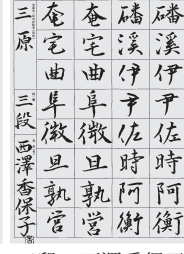 磻溪伊尹佐時阿衡
磻溪伊尹佐時阿衡
奄宅曲阜微旦孰営
奄宅曲阜微旦孰営
三原 三段 西澤香保子